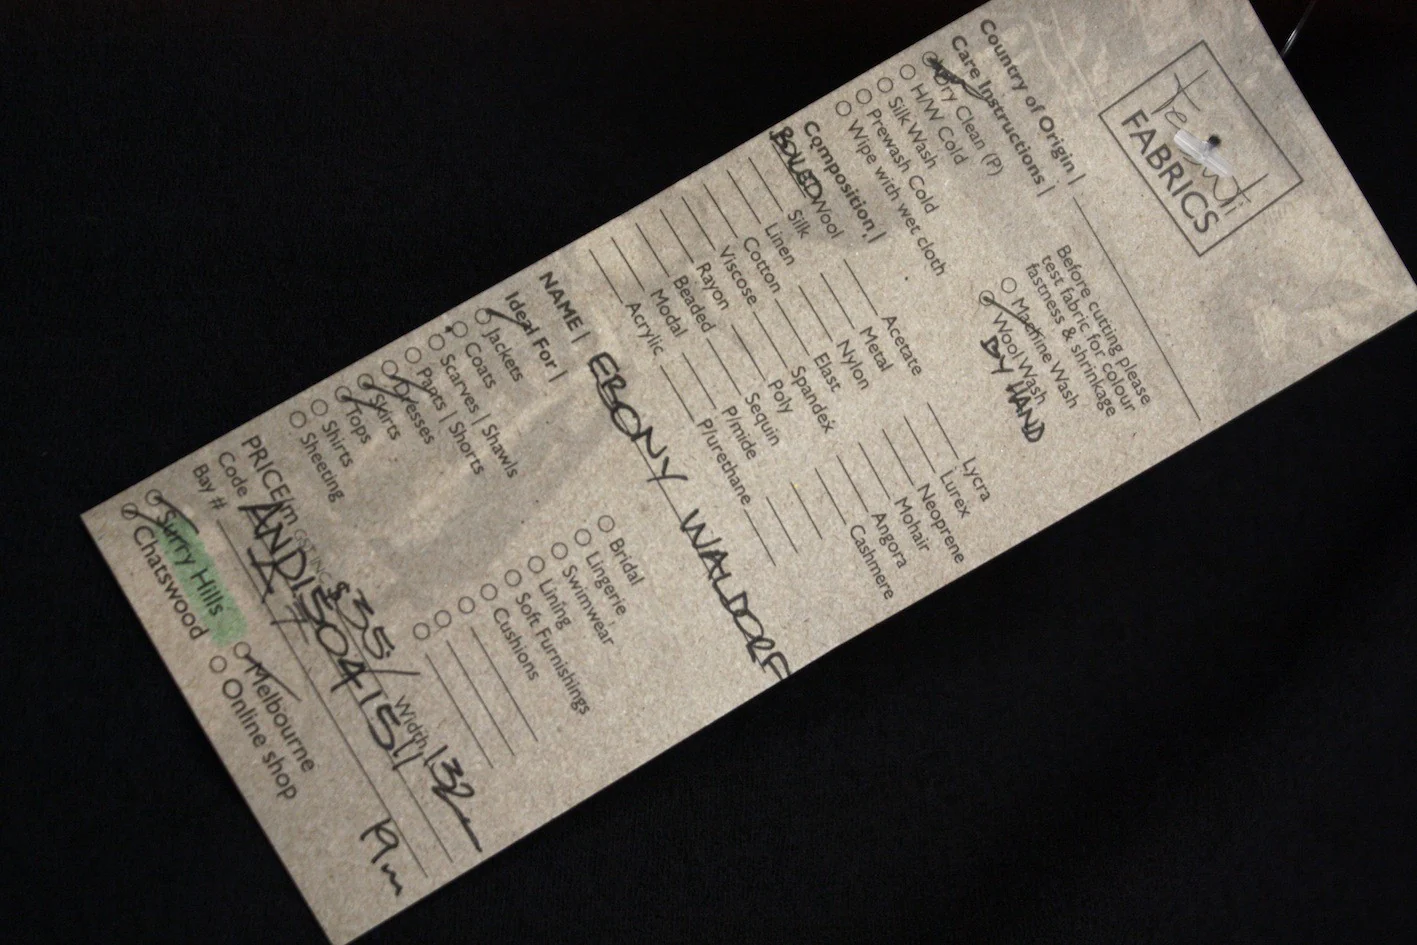 FABRICS
Country of Origin |
Care Instructions |
Dry Clean (P)
H/W Cold
Silk Wash
Prewash Cold
Wipe with wet cloth
Before cutting please
test fabric for colour
fastness & shrinkage
Machine Wash
Wool Wash
BY HAND
Composition |
BOILED Wool
Silk
Linen
Cotton
Viscose
Rayon
Beaded
Modal
Acrylic
Acetate
Metal
Nylon
Elast
Spandex
Poly
Sequin
P/mide
P/urethane
Lycra
Lurex
Neoprene
Mohair
Angora
Cashmere
NAME | EBONY WALDORF
Ideal For |
Jackets
Coats
Scarves | Shawls
Pants | Shorts
Dresses
Skirts
Tops
Shirts
Sheeting
Bridal
Lingerie
Swimwear
Lining
Soft Furnishings
Cushions
PRICE/m GST INC $35/ Width 132
Code ANDI5041511
Bay # 19m
Surry Hills
Chatswood
Melbourne
Online shop